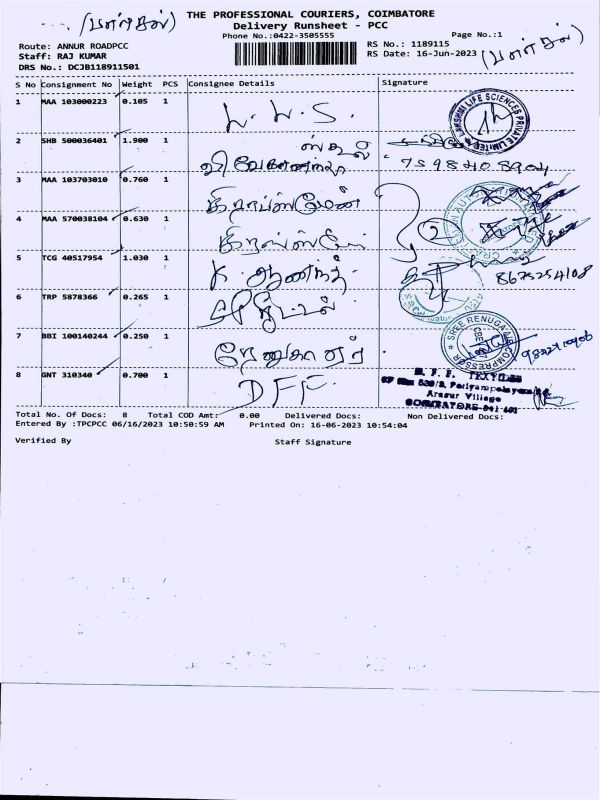 (பார்சல்)
THE PROFESSIONAL COURIERS, COIMBATORE
Delivery Runsheet - PCC
Phone No.:0422-3505555
Page No.:1
Route: ANNUR ROADPCC
RS No.: 1189115
(பார்சல்)
Staff: RAJ KUMAR
RS Date: 16-Jun-2023
DRS No.: DCJB118911501
S No Consignment No Weight PCS Consignee Details Signature
1 MAA 103000223 0.105 1 L.L.S. LAKSHMI LIFE SCIENCES PRIVATE LIMITED
2 SHB 500036401 1.900 1 ஸ்கூல் 7598408904
3 MAA 103703010 0.760 1
4 MAA 570038104 0.630 1 2
5 TCG 40517954 1.030 1 K. ஆனந்த் 8675254108
6 TRP 5878366 0.265 1
7 BBI 100140244 0.250 1 ரேணுகா ஏர் SREE RENUGA AIR COMPRESSOR
8 GNT 310340 0.700 1 DFF
Arasur Village
COIMBATORE-641 407
Total No. Of Docs: 8 Total COD Amt: 0.00 Delivered Docs: Non Delivered Docs:
Entered By :TPCPCC 06/16/2023 10:50:59 AM Printed On: 16-06-2023 10:54:04
Verified By Staff Signature